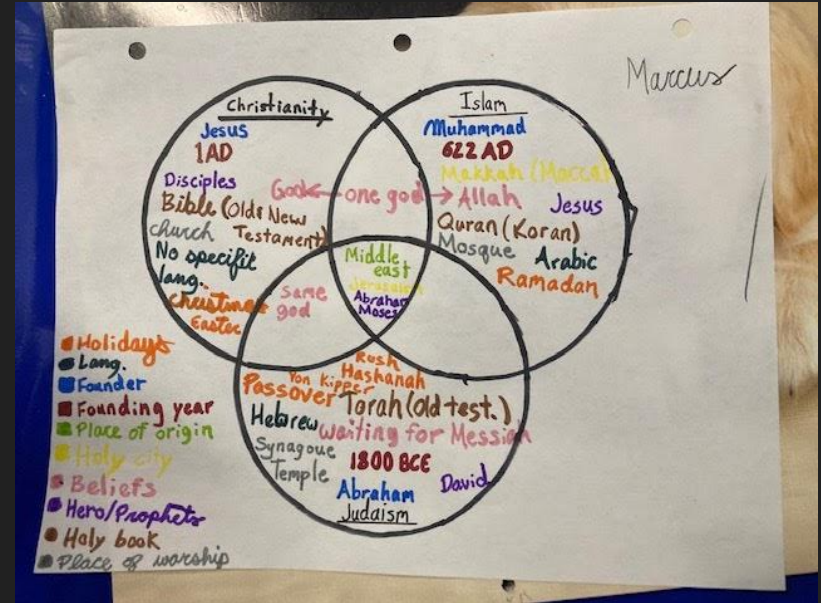 Marcus
Christianity
Jesus
1AD
Disciples
God ← one god → Allah
Bible (Old & New
Testament)
church
No specific
lang.
Christmas
Easter
Islam
Muhammad
622 AD
Makkah (Mecca)
Jesus
Quran (Koran)
Mosque
Arabic
Ramadan
Middle
east
Jerusalem
Abraham
Moses
same
god
Rosh
Hashanah
Yon Kipper
Passover
Torah (Old test.)
Hebrew
waiting for Messiah
Synagoue
Temple
1800 BCE
David
Abraham
Judaism
Holidays
Lang.
Founder
Founding year
Place of origin
Holy city
Beliefs
Hero/Prophets
Holy book
Place of worship